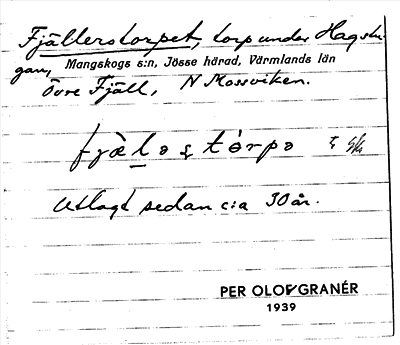 Fjällerstorpet, torp under Hagstu-
gan, Mangskogs s:n, Jösse härad, Värmlands län
Övre Fjäll, N Mossviken.
fjæ̀lǝstórpǝ
Utlagt sedan c:a 30 år.
PER OLOF GRANÉR
1939